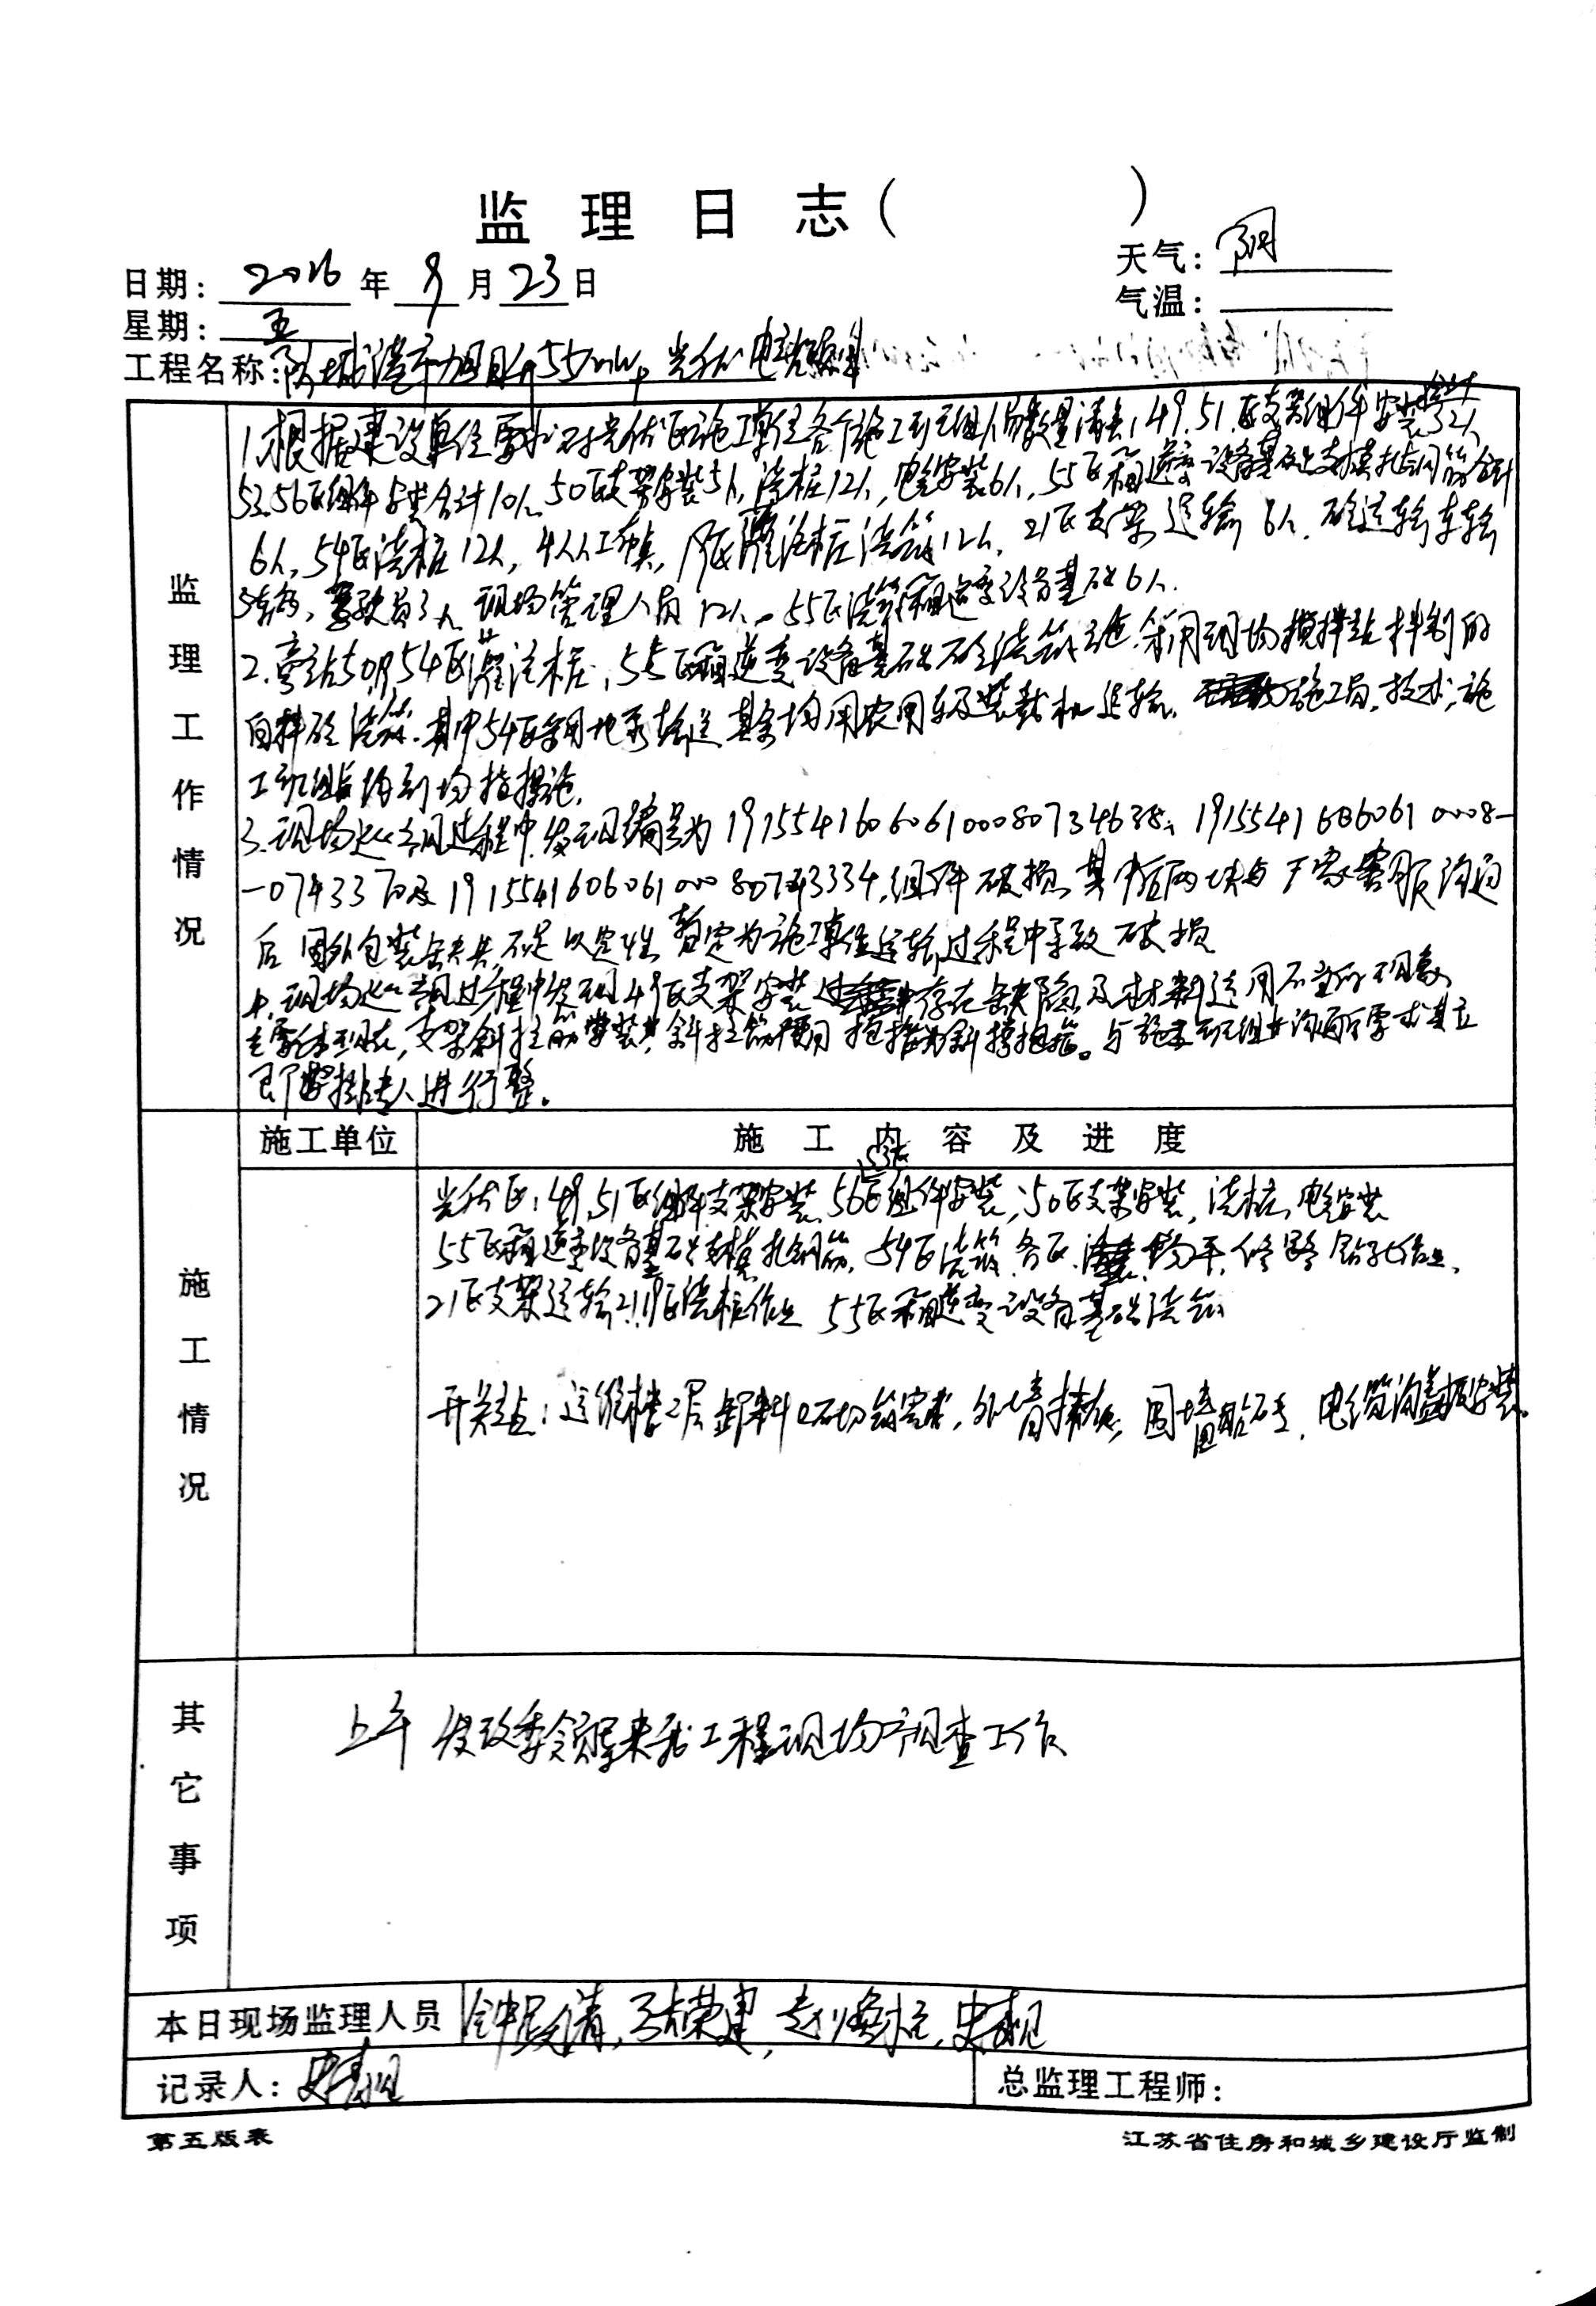 监理日志( )
日期: 2016 年 9 月 23 日
天气: 阴
星期: 五
气温:
工程名称: 55MWp 光伏电站
监理工作情况
1.根据建设单位要求对光伏区施工单位各个施工班组人员数量清点,49.51.区支架组件安装合计32人
53.56区组件安装合计10人.50区支架安装5人,浇桩12人,电缆安装6人,55区箱逆变设备基础支模扎钢筋合计
6人,54区浇桩12人,灌注桩浇筑12人,21区支架运输6人.砼运输车辆
驾驶员3人.现场管理人员12人.55区浇筑箱逆变设备基础6人.
2.旁站54区灌注桩,55区箱逆变设备基础砼浇筑施工.采用现场搅拌站拌制的
自拌砼浇筑.其中54区采用地泵输送.其余均用农用车及装载机运输.施工员.技术,施
工班组长均到场指挥施.
3.现场巡视过程中,发现编号为 191554160606100080734638、1915541606061 0008-
-0743370及191554160606100080743334,组件破损.其中后两块与厂家客服沟通
后 因外包装缺失不足以定性 暂定为施工单位运输过程中导致破损
4.现场巡视过程中发现49区支架安装存在缺陷及材料选用不当的现象
主要体现在,支架斜拉筋安装,斜拉筋.与施工班组长沟通要求其立
即安排专人进行整.
施工情况
施工单位
施工内容及进度
光伏区:49,51区组件支架安装.53区56区组件安装;50区支架安装,浇桩,电缆安装
55区箱逆变设备基础支模扎钢筋,54区浇筑.各区场平,修路 钻孔作业.
21区支架运输 浇桩作业 55区箱逆变设备基础浇筑
开关站:运维楼2层卸料口砌筑完成,外墙,围墙贴砖,电缆沟盖板安装.
其它事项
上午 发改委领导来我工程现场调查工作
本日现场监理人员
记录人:
总监理工程师:
第五版表
江苏省住房和城乡建设厅监制